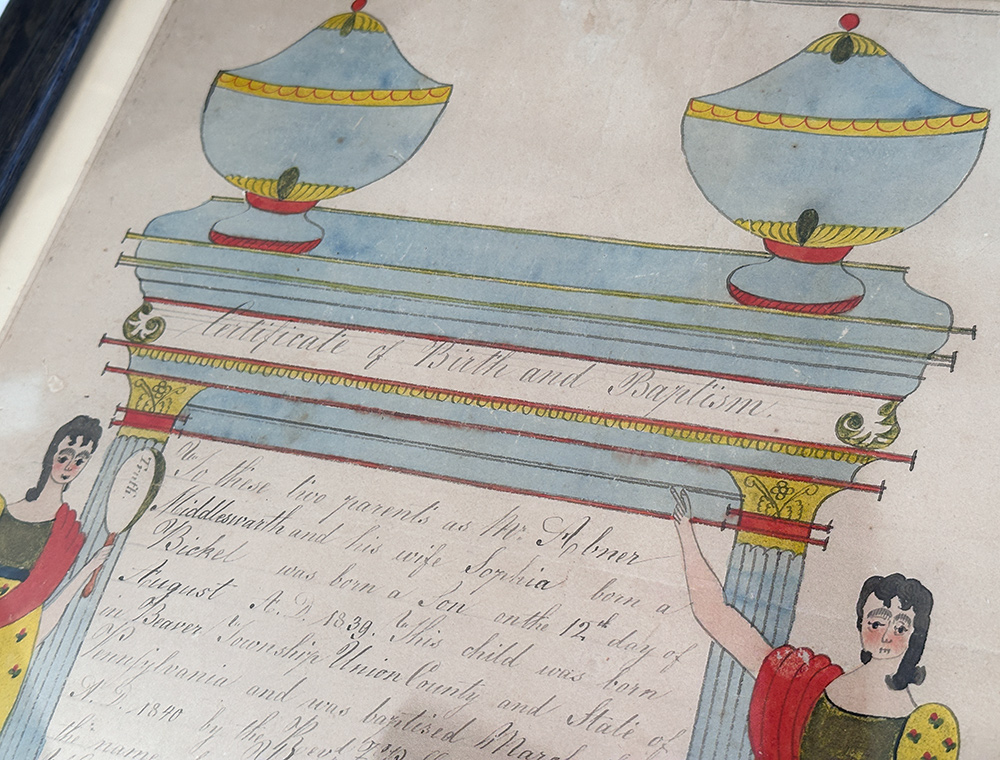 Certificate of Birth and Baptism.
Truth.
To these two parents as Mr. Abner
Middleswarth and his wife Sophia born a
Bickel was born a Son on the 12th day of
August A.D. 1839. This child was born
in Beaver Township Union County and State of
Pennsylvania and was baptised March
A.D. 1840 by the Revd
the name